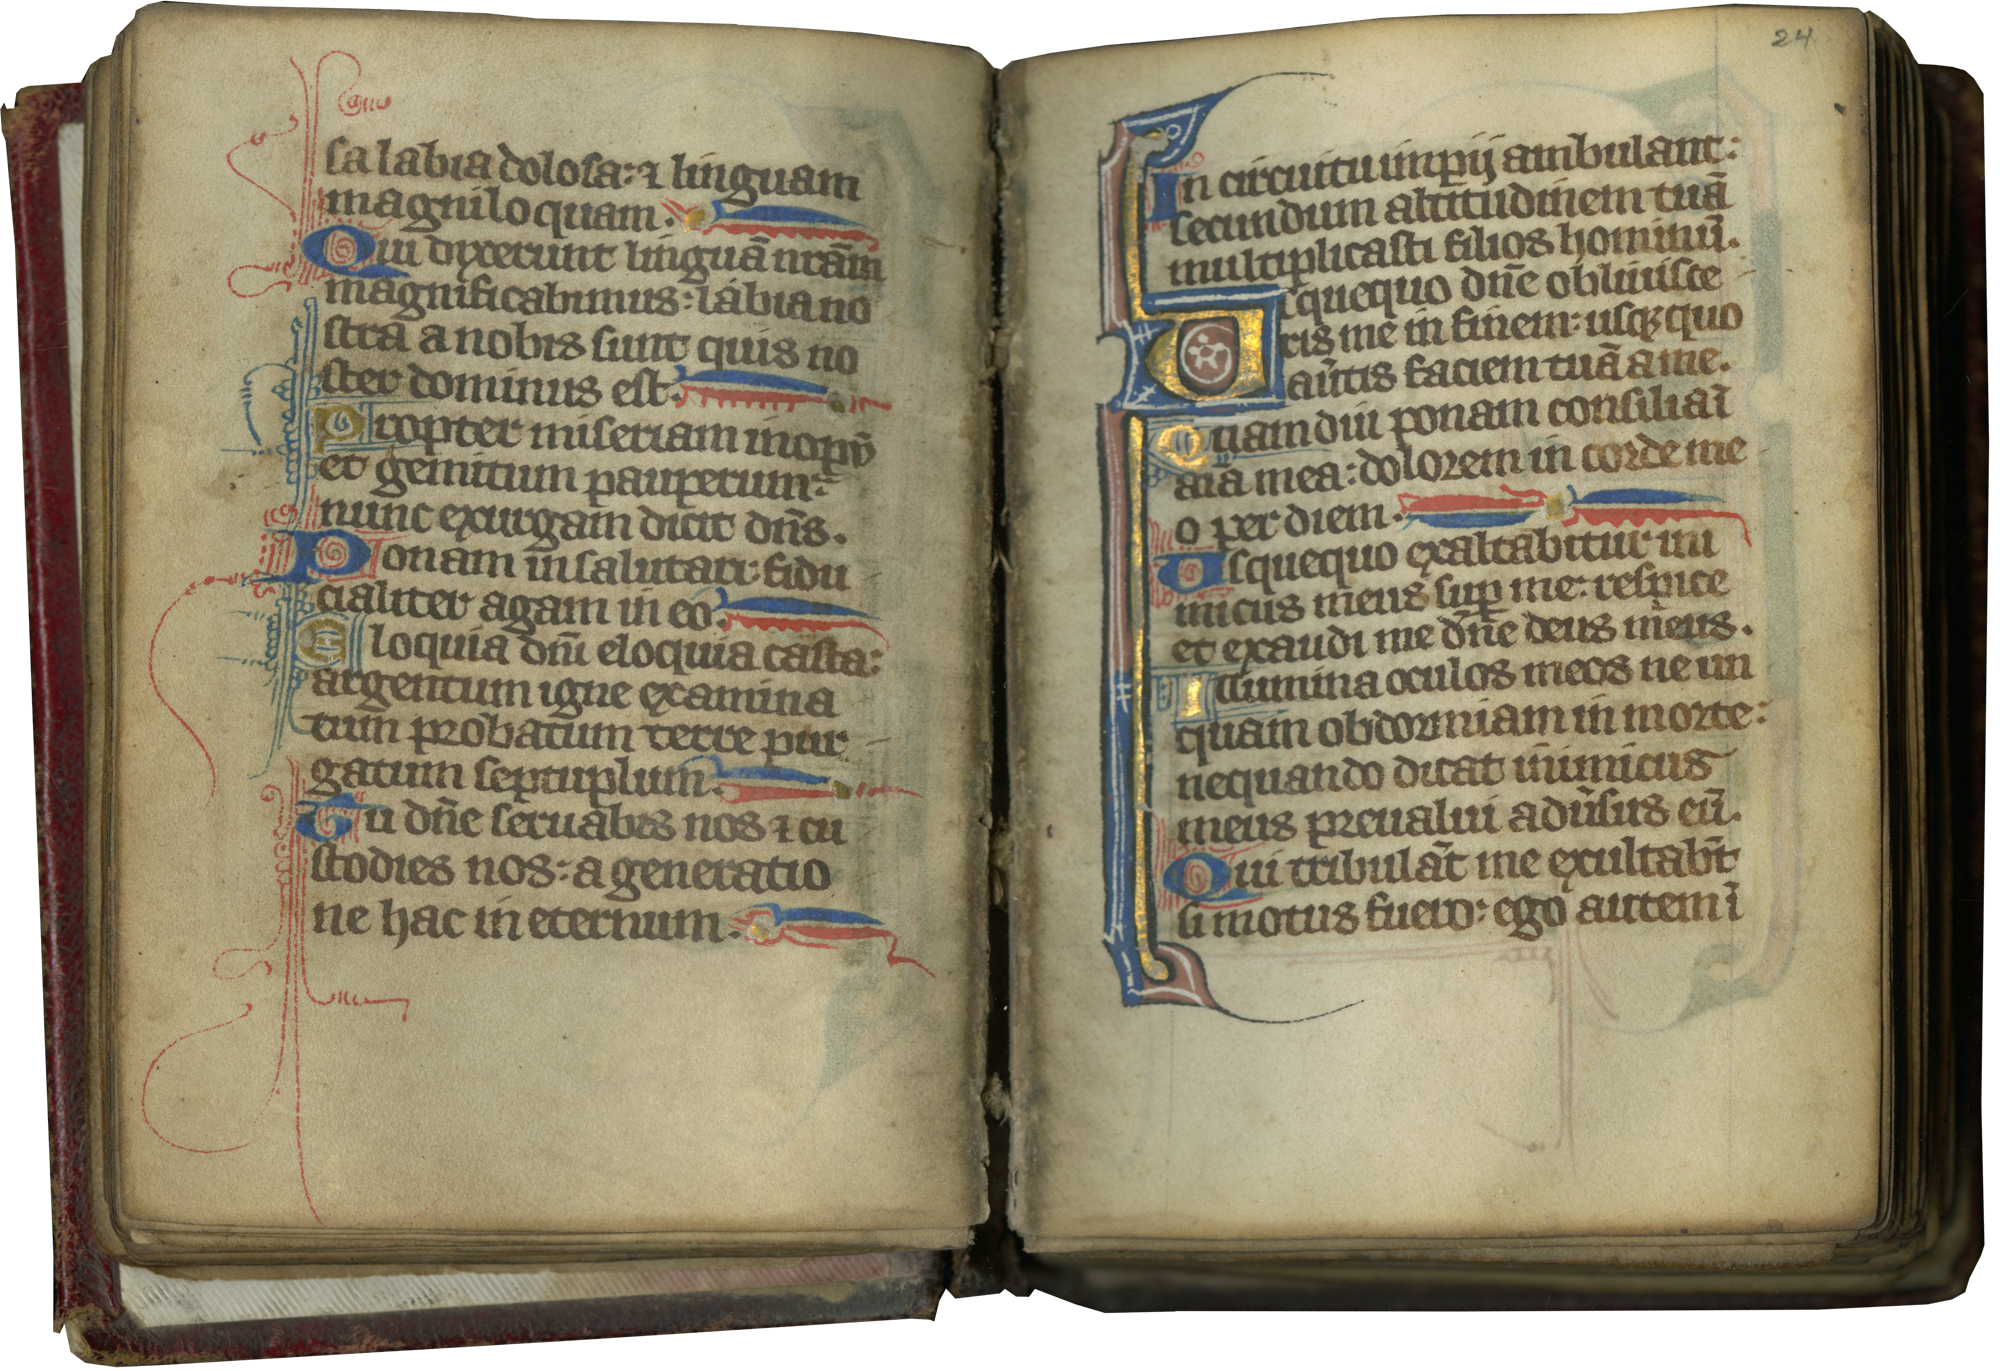 sa labia dolosa: ⁊ linguam
magniloquam.
Qui dixerunt linguā nr̄am
magnificabimus: labia no
stra a nobis sunt quis no
ster dominus est.
Propter miseriam inopū
et gemitum pauperum:
nunc exurgam dicit dn̄s.
Ponam in salutari: fidu
cialiter agam in eo.
Eloquia dn̄i eloquia casta:
argentum igne examina
tum probatum terre pur
gatum septuplum.
Tu dn̄e seruabis nos ⁊ cu
stodies nos: a generatio
ne hac in eternum.
24
In circuitu impij ambulant:
secundum altitudinem tuā
multiplicasti filios hominū.
Usquequo dn̄e obliuisce
ris me in finem: usqꝫ quo
au̅tis faciem tuā a me.
Quamdiu ponam consilia ī
aīa mea: dolorem in corde me
o per diem.
Usquequo exaltabitur ini
micus meus suꝑ me: respice
et exaudi me dn̄e deus meus.
Illumina oculos meos ne un
quam obdormiam in morte:
nequando dicat inimicus
meus preualui adūsus eū.
Qui tribulāt me exultabn̄t
si motus fuero: ego autem ī